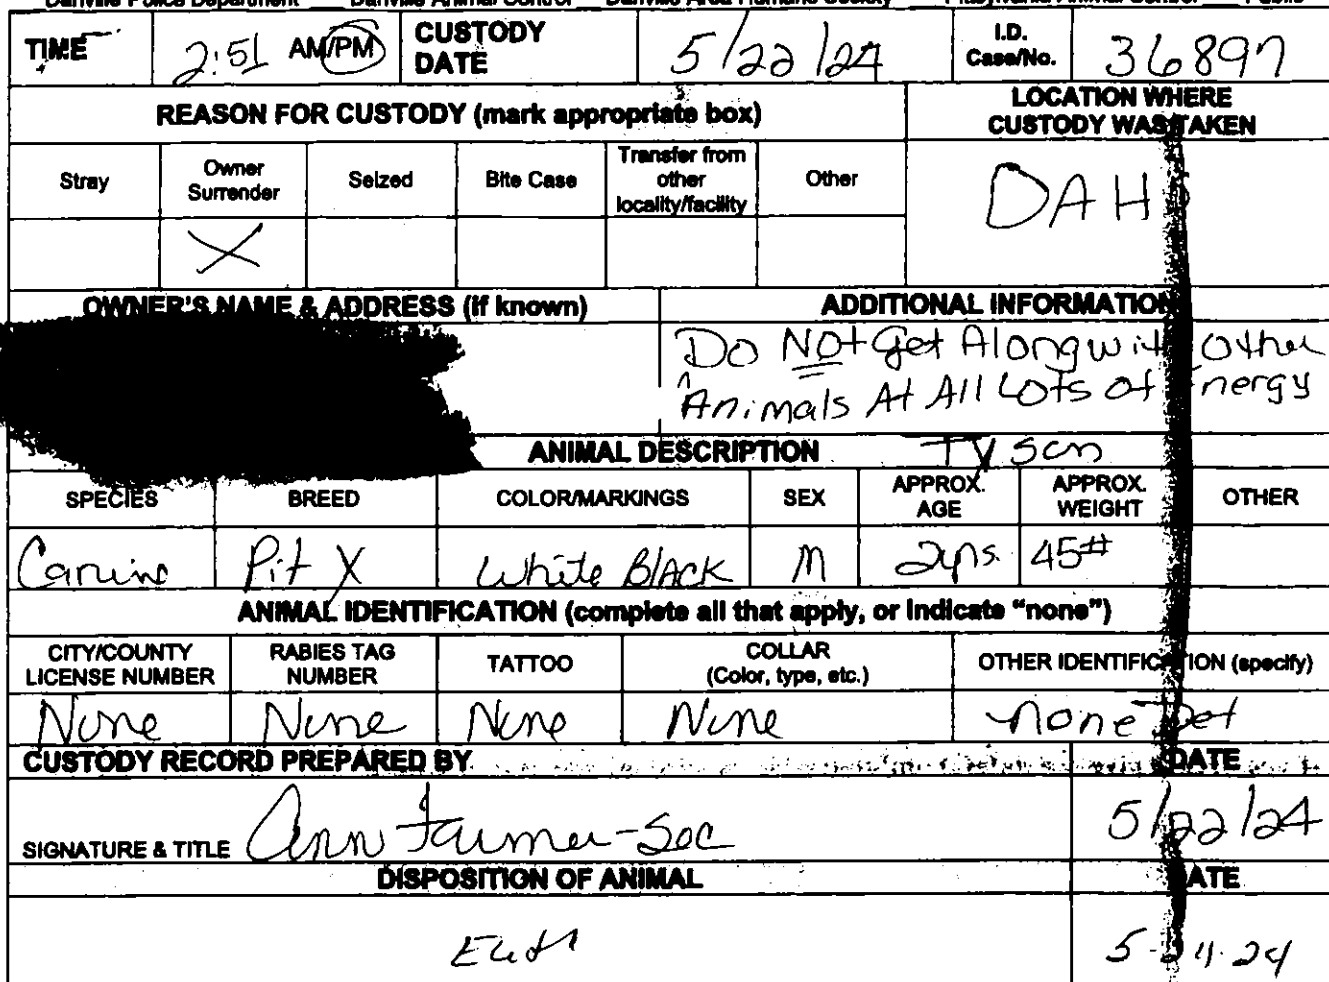 Danville Police Department Danville Animal Control Danville Area Humane Society Pittsylvania Animal Control Public
TIME 2:51 AM/PM CUSTODY DATE 5/22/24 I.D. Case/No. 36897
REASON FOR CUSTODY (mark appropriate box) LOCATION WHERE CUSTODY WAS TAKEN
Stray Owner Surrender Seized Bite Case Transfer from other locality/facility Other
X DAH
OWNER'S NAME & ADDRESS (if known) ADDITIONAL INFORMATION
Do NOt Get Along with Other
Animals At All Lots of Energy
ANIMAL DESCRIPTION Tyson
SPECIES BREED COLOR/MARKINGS SEX APPROX. AGE APPROX. WEIGHT OTHER
Canine Pit X White Black M 2yrs. 45#
ANIMAL IDENTIFICATION (complete all that apply, or indicate "none")
CITY/COUNTY LICENSE NUMBER RABIES TAG NUMBER TATTOO COLLAR (Color, type, etc.) OTHER IDENTIFICATION (specify)
None None None None None Det
CUSTODY RECORD PREPARED BY DATE
SIGNATURE & TITLE Ann Farmer-Sec 5/22/24
DISPOSITION OF ANIMAL DATE
Euth 5-24-24